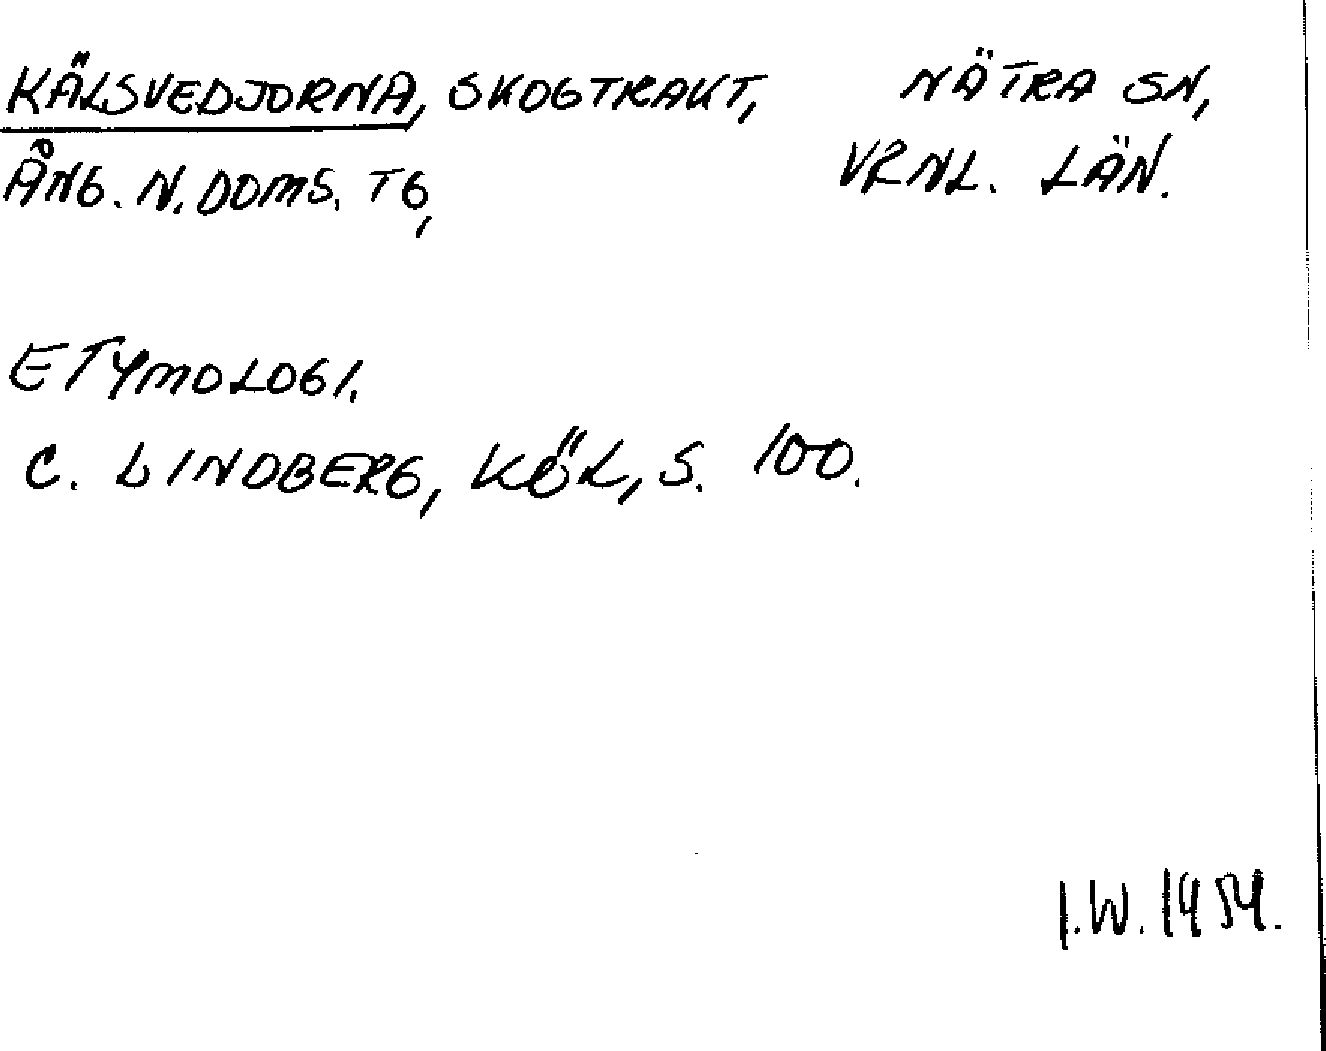 KÄLSVEDJORNA, SKOGTRAKT, NÄTRA SN,
ÅNG. N. DOMS. TG, VRNL. LÄN.
ETYMOLOGI.
C. LINDBERG, KÖL, S. 100.
I.W. 1954.